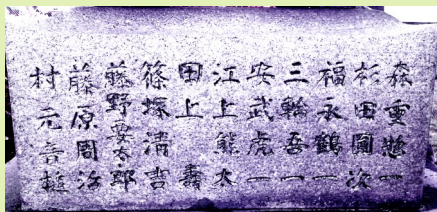 森重慇一
杉田圓次
福永鶴一
三輪吾一
安武虎一
江上熊太
田上壽
篠塚清吉
藤野安太郎
藤原周治
村元喜